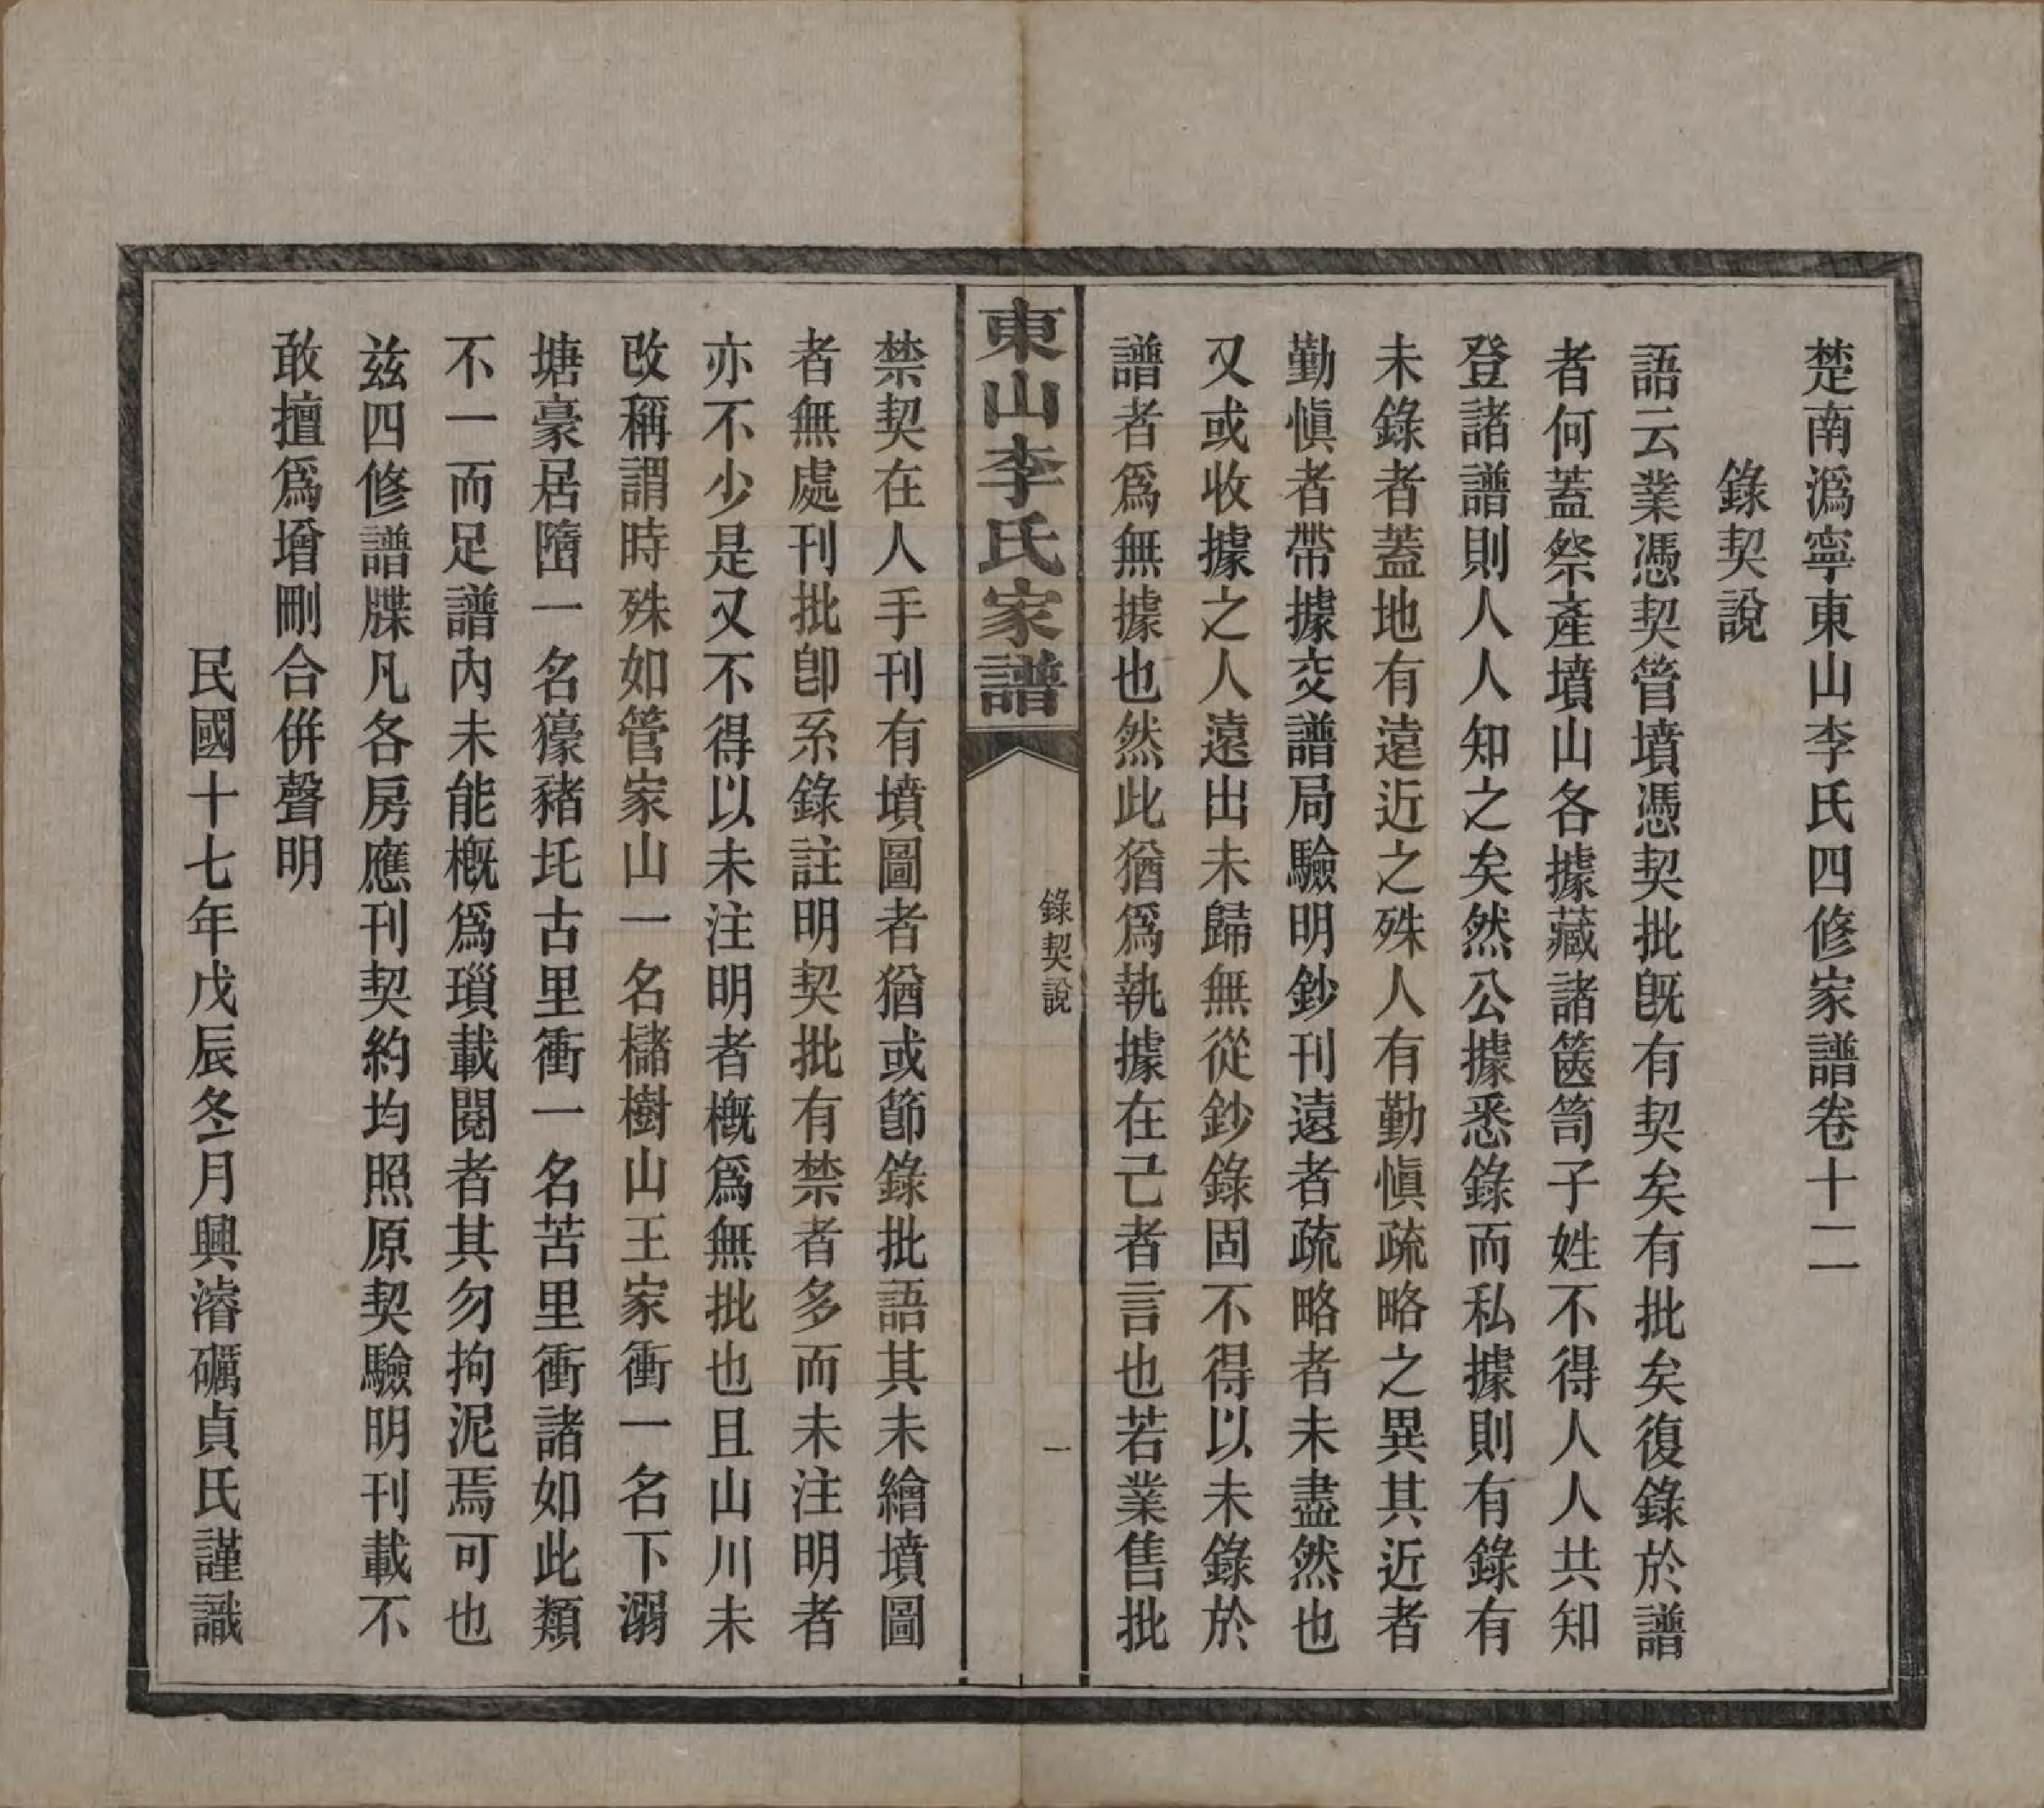 楚南潙寧東山李氏四修家譜卷十二
錄契說
語云業憑契管墳憑契批旣有契矣有批矣復錄於譜
者何蓋祭產墳山各據藏諸篋笥子姓不得人人共知
登諸譜則人人知之矣然公據悉錄而私據則有錄有
未錄者蓋地有遠近之殊人有勤愼疏略之異其近者
勤愼者帶據交譜局驗明鈔刊遠者疏略者未盡然也
又或收據之人遠出未歸無從鈔錄固不得以未錄於
譜者爲無據也然此猶爲執據在己者言也若業售批
東山李氏家譜
錄契說
一
禁契在人手刊有墳圖者猶或節錄批語其未繪墳圖
者無處刊批卽系錄註明契批有禁者多而未注明者
亦不少是又不得以未注明者槪爲無批也且山川未
改稱謂時殊如管家山一名櫧樹山王家衝一名下溺
塘豪居㙐一名獴豬坉古里衝一名苦里衝諸如此類
不一而足譜內未能槪爲瑣載閱者其勿拘泥焉可也
兹四修譜牒凡各房應刊契約均照原契驗明刊載不
敢擅爲增刪合倂聲明
民國十七年戊辰冬月興濬礪貞氏謹識